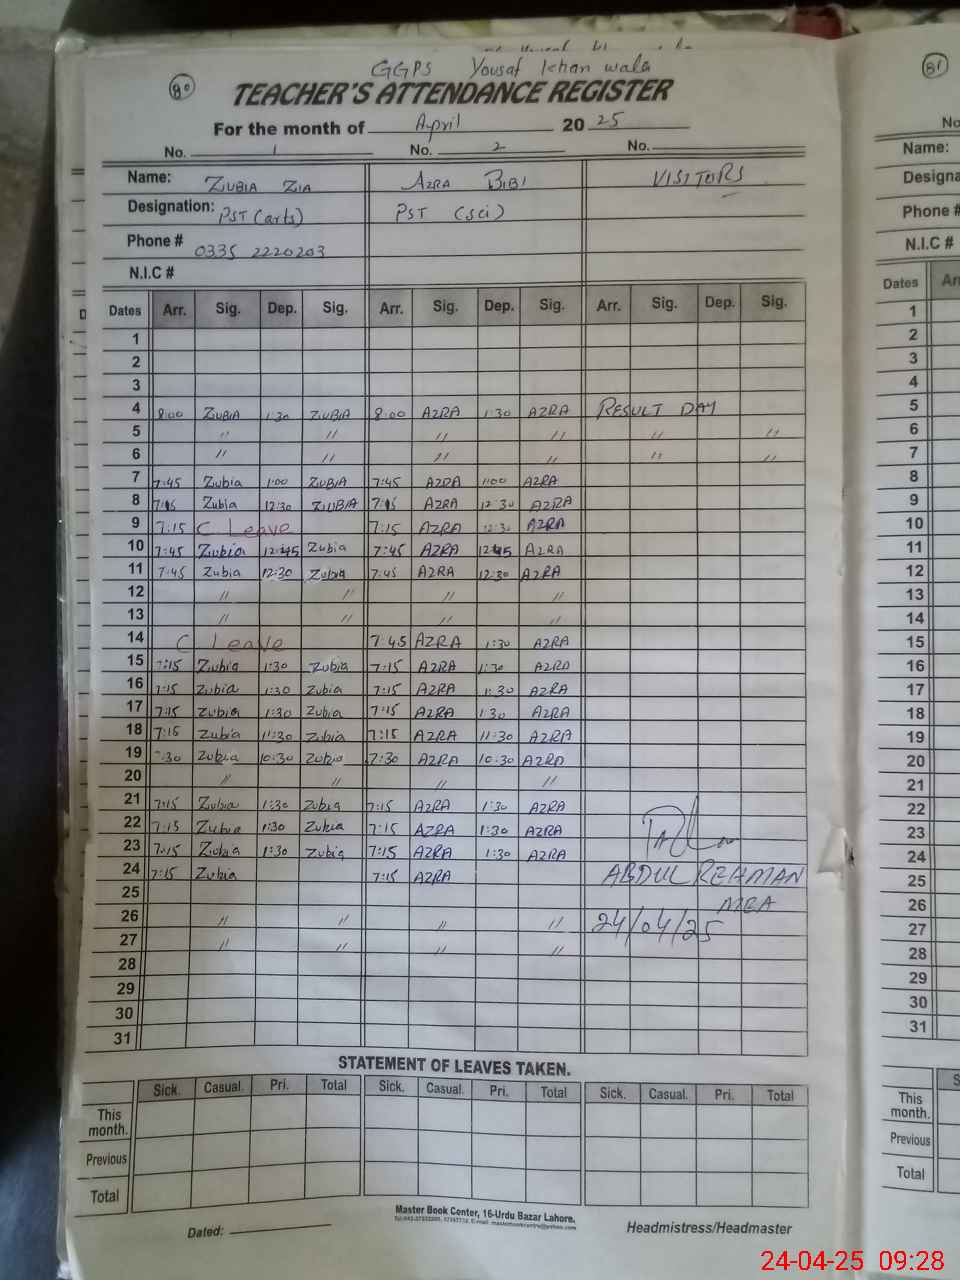 GGPS Yousaf Khan wala
80
TEACHER'S ATTENDANCE REGISTER
For the month of April 2025
No. 1 No. 2 No.
Name: ZUBIA ZIA AZRA BIBI VISITORS
Designation: PST (arts) PST (sci)
Phone # 0335 2220203
N.I.C #
Dates Arr. Sig. Dep. Sig. Arr. Sig. Dep. Sig. Arr. Sig. Dep. Sig.
1
2
3
4 8:00 ZUBIA 1:30 ZUBIA 8:00 AZRA 1:30 AZRA RESULT DAY
5 〃 〃 〃 〃 〃 〃
6 〃 〃 〃 〃 〃 〃
7 7:45 Zubia 1:00 ZUBIA 7:45 AZRA 1:00 AZRA
8 7:15 Zubia 12:30 ZUBIA 7:15 AZRA 12:30 AZRA
9 7:15 C Leave 7:15 AZRA 12:30 AZRA
10 7:45 Zubia 12:45 Zubia 7:45 AZRA 12:45 AZRA
11 7:45 Zubia 12:30 Zubia 7:45 AZRA 12:30 AZRA
12 〃 〃 〃 〃
13 〃 〃 〃 〃
14 C Leave 7:45 AZRA 1:30 AZRA
15 7:15 Zubia 1:30 Zubia 7:15 AZRA 1:30 AZRA
16 7:15 Zubia 1:30 Zubia 7:15 AZRA 1:30 AZRA
17 7:15 Zubia 1:30 Zubia 7:15 AZRA 1:30 AZRA
18 7:15 Zubia 11:30 Zubia 7:15 AZRA 11:30 AZRA
19 7:30 Zubia 10:30 Zubia 7:30 AZRA 10:30 AZRA
20 〃 〃 〃 〃
21 7:15 Zubia 1:30 Zubia 7:15 AZRA 1:30 AZRA
22 7:15 Zubia 1:30 Zubia 7:15 AZRA 1:30 AZRA
23 7:15 Zubia 1:30 Zubia 7:15 AZRA 1:30 AZRA
24 7:15 Zubia 7:15 AZRA ABDUL REHMAN
25 MEA
26 〃 〃 〃 〃 24/04/25
27 〃 〃 〃 〃
28
29
30
31
STATEMENT OF LEAVES TAKEN.
Sick. Casual. Pri. Total Sick. Casual. Pri. Total Sick. Casual. Pri. Total
This month.
Previous
Total
Master Book Center, 16-Urdu Bazar Lahore.
Dated: Headmistress/Headmaster
81
No
Name:
Designa
Phone #
N.I.C #
Dates Arr
1
2
3
4
5
6
7
8
9
10
11
12
13
14
15
16
17
18
19
20
21
22
23
24
25
26
27
28
29
30
31
S
This month.
Previous
Total
24-04-25 09:28